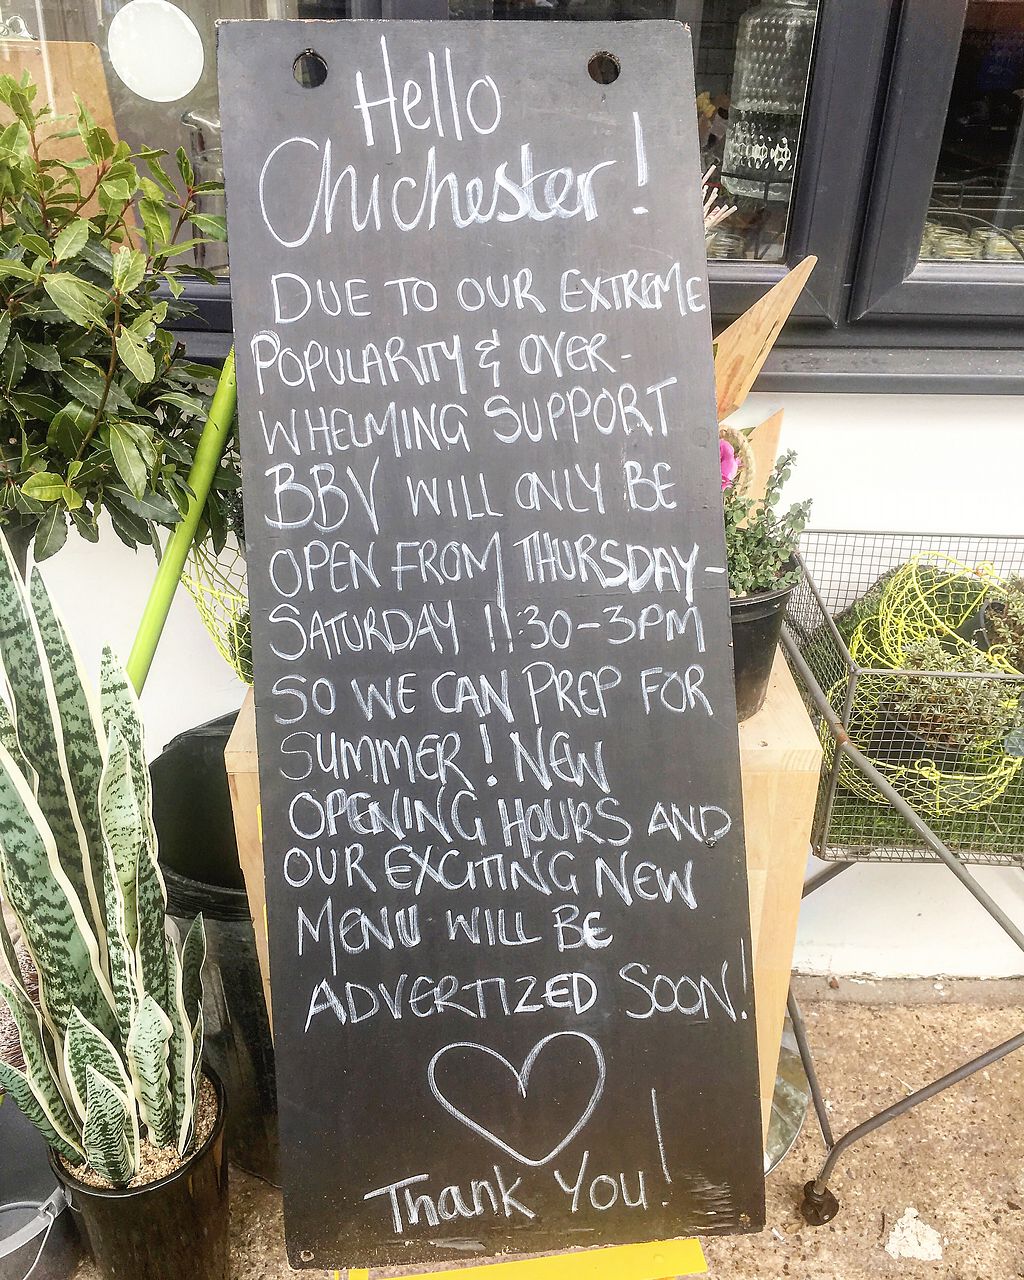 Hello
Chichester!
DUE TO OUR EXTREME
POPULARITY & OVER-
WHELMING SUPPORT
BBV WILL ONLY BE
OPEN FROM THURSDAY-
SATURDAY 11:30-3PM
SO WE CAN PREP FOR
SUMMER! NEW
OPENING HOURS AND
OUR EXCITING NEW
MENU WILL BE
ADVERTIZED SOON!
Thank You!